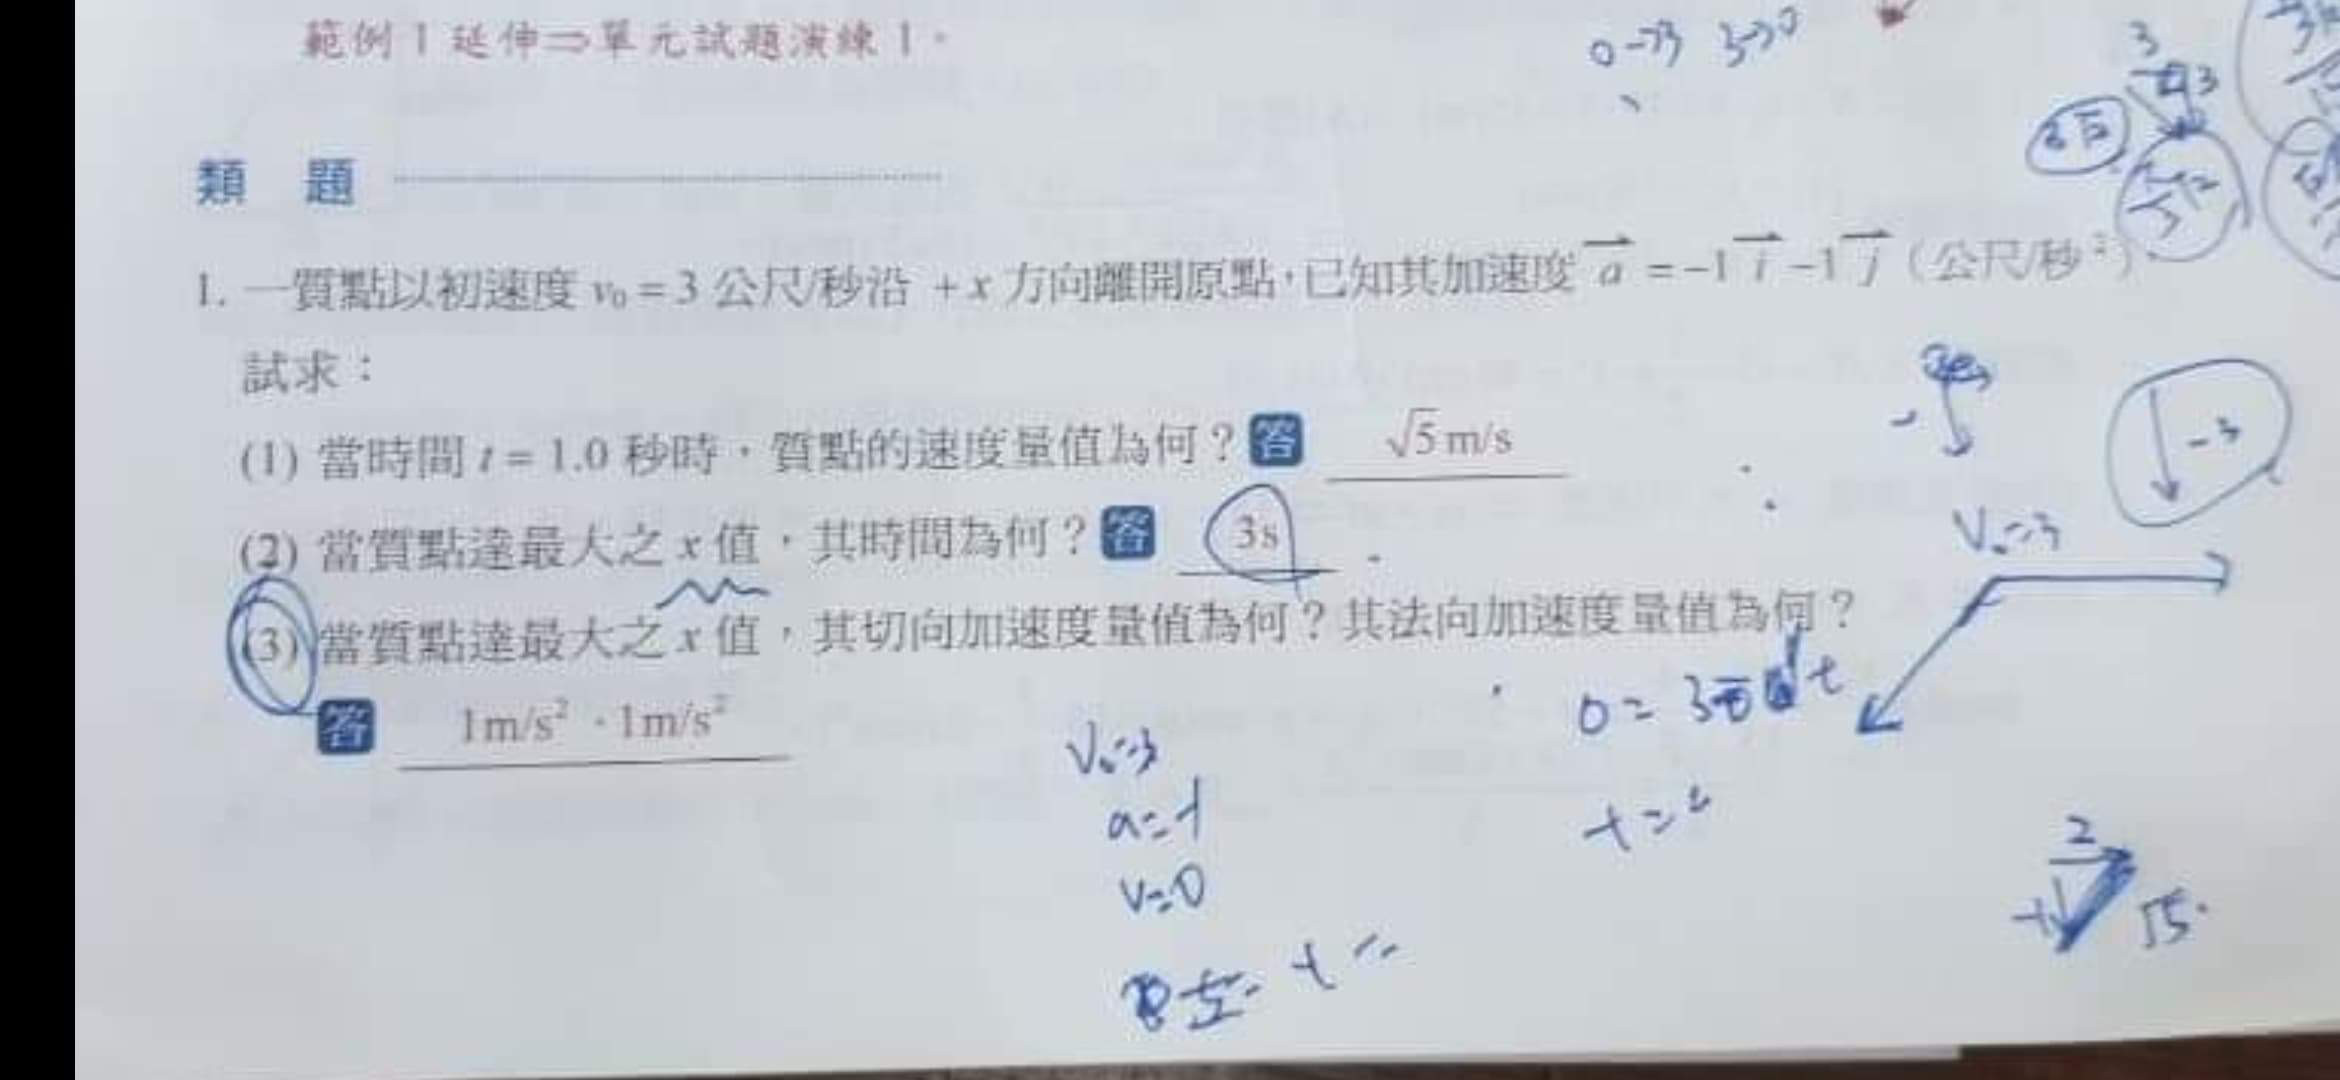 範例 1 延伸⇒單元試題演練 1。
0→3 3→0
3
3
類 題
1. 一質點以初速度 v₀ = 3 公尺/秒沿 +x 方向離開原點，已知其加速度 a⃗ = −1 i⃗ −1 j⃗（公尺/秒²）。
試求：
(1) 當時間 t = 1.0 秒時，質點的速度量值為何？答 √5 m/s
(2) 當質點達最大之 x 值，其時間為何？答 3s
-3
V₀=3
(3) 當質點達最大之 x 值，其切向加速度量值為何？其法向加速度量值為何？
答 1m/s²，1m/s²
V₀=3
a=-1
V=0
t=
2
√5